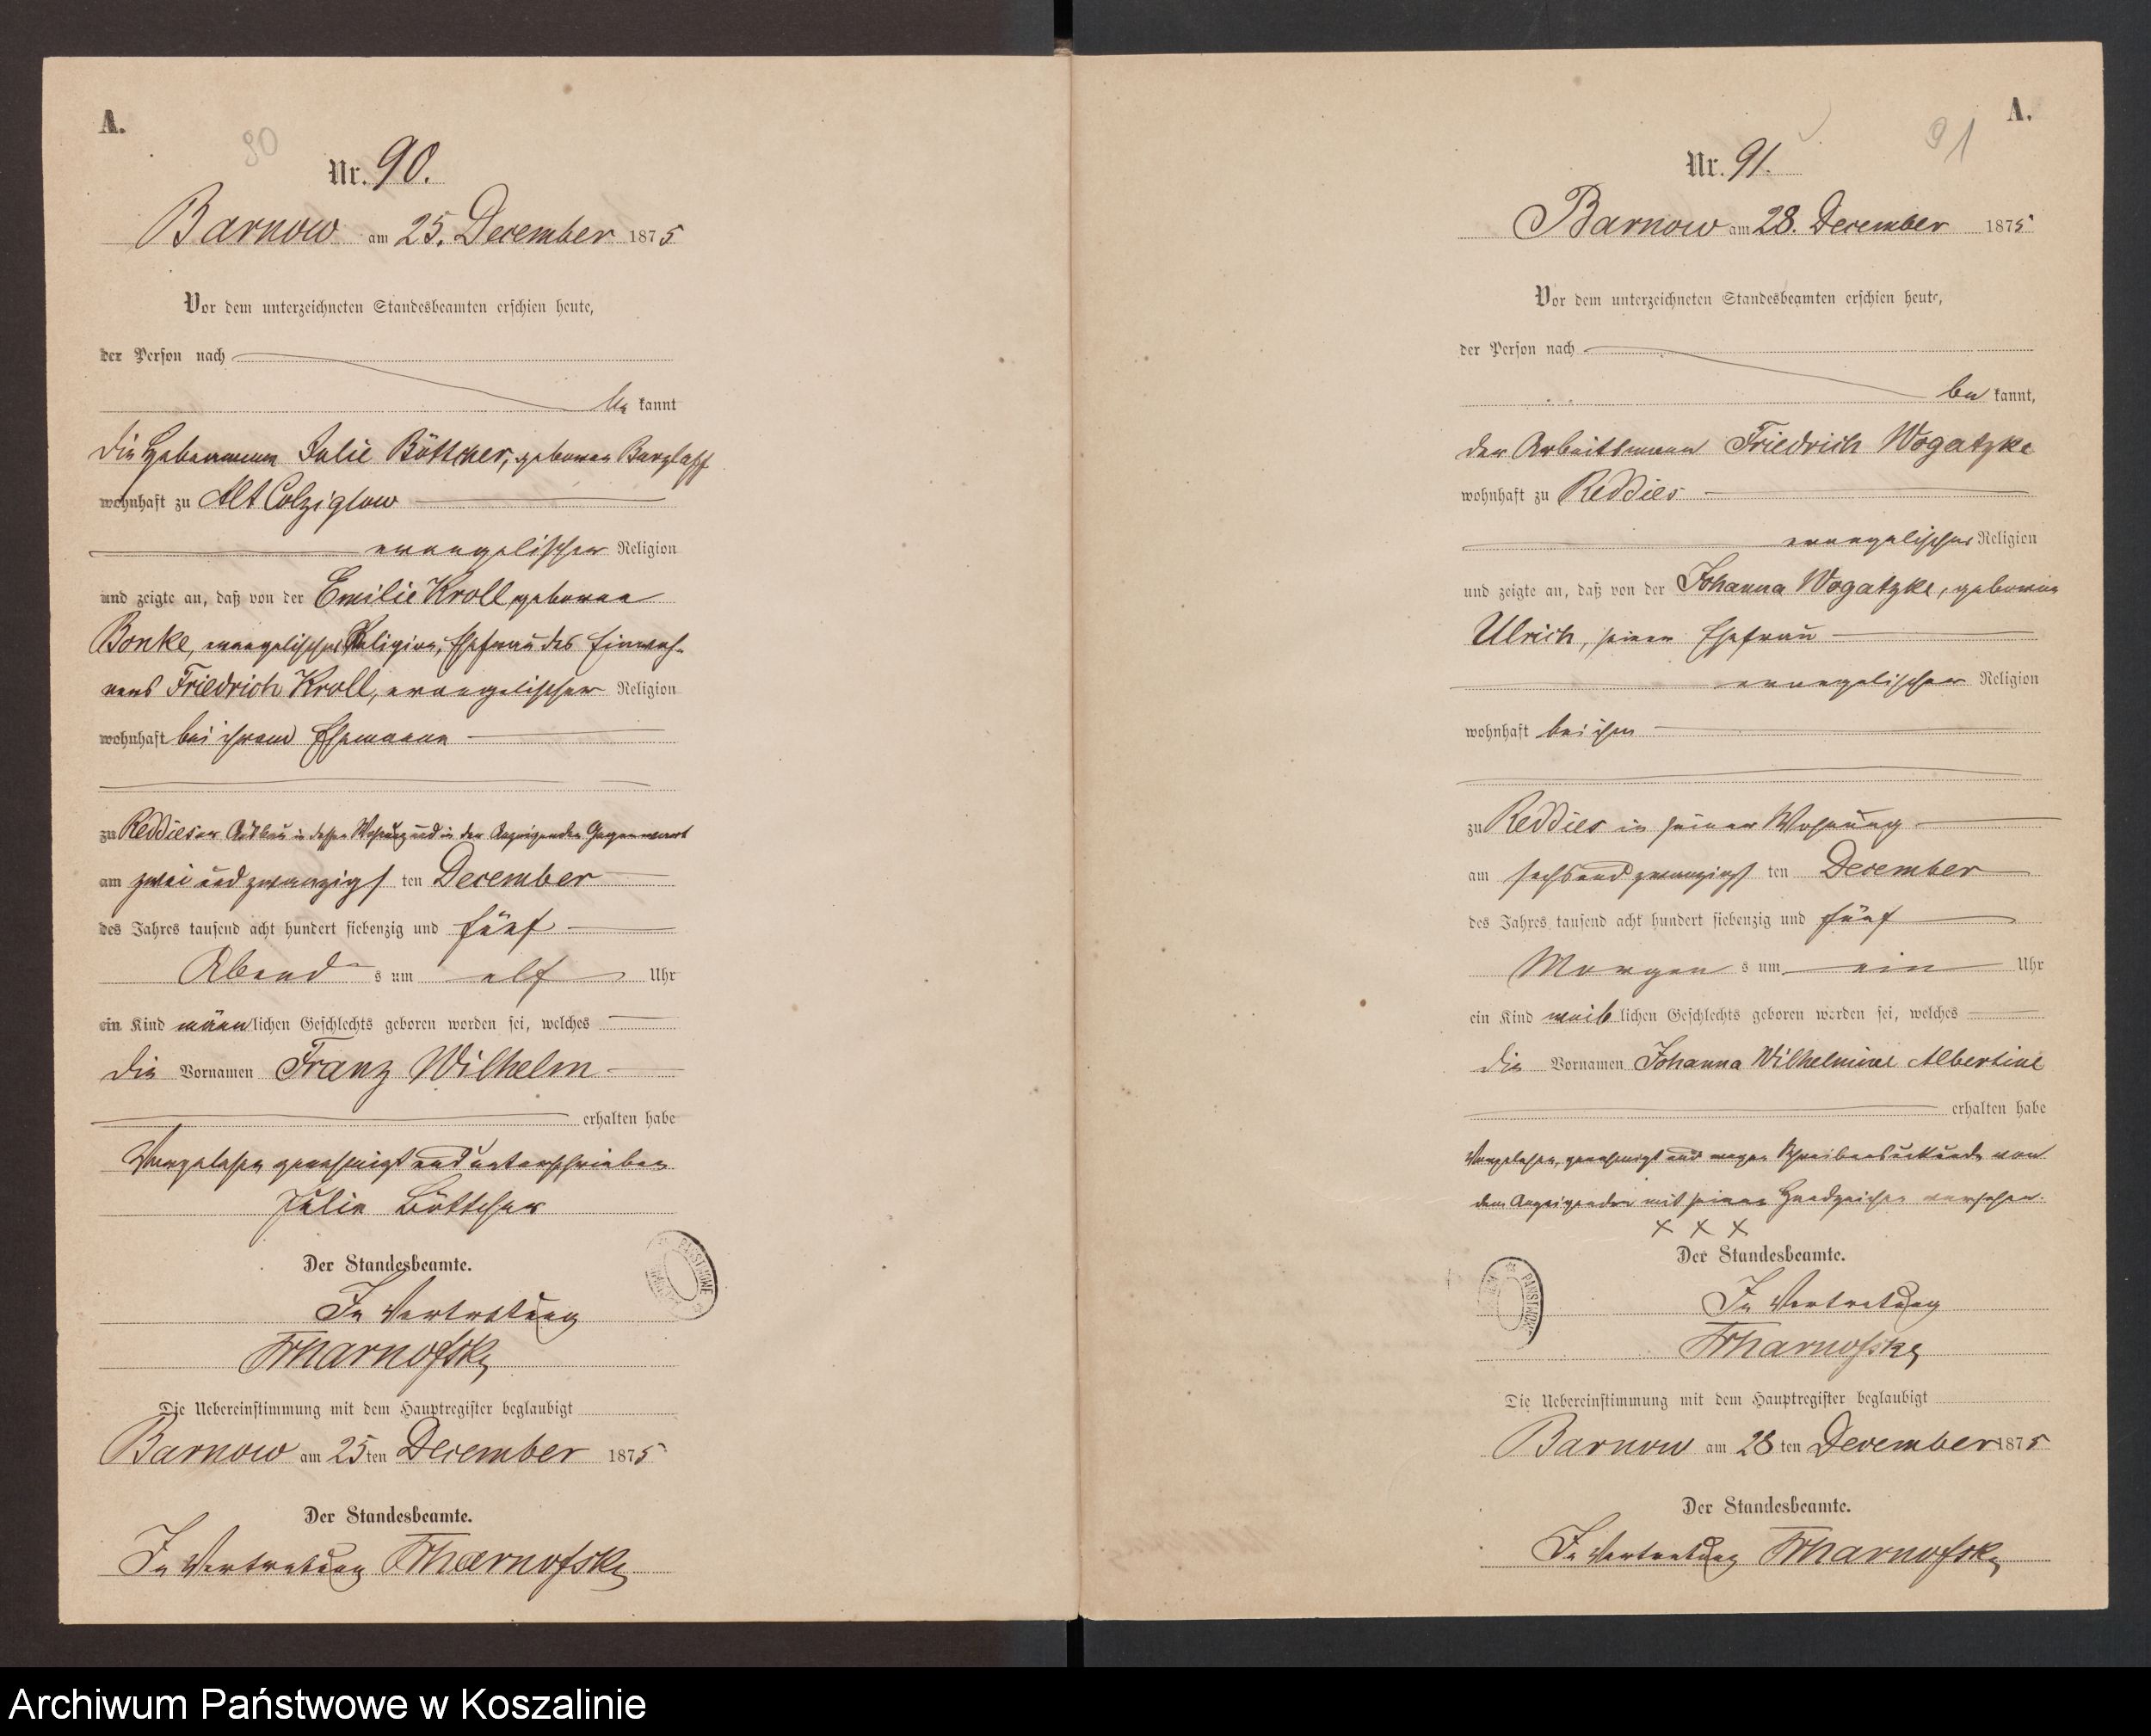 A.
90
Nr. 90.
Barnow am 25. December 1875
Vor dem unterzeichneten Standesbeamten erschien heute,
der Person nach
be kannt
die Hebeamme Julie Böttcher, geborne Barzlaff
wohnhaft zu Alt Colziglow
evangelischer Religion
und zeigte an, daß von der Emilie Kroll geborne
Bonke, evangelischer Religion, Ehefrau des Einwoh-
ners Friedrich Kroll, evangelischer Religion
wohnhaft bei ihrem Ehemanne
zu Reddieser Ausbau in dessen Wohnung und in der Anzeigenden Gegenwart
am zwei und zwanzigs ten December
des Jahres tausend acht hundert siebenzig und fünf
Abend s um elf Uhr
ein Kind männ lichen Geschlechts geboren worden sei, welches
die Vornamen Franz Wilhelm
erhalten habe
Vorgelesen genehmigt und unterschrieben
Julie Böttcher
Der Standesbeamte.
In Vertretung
Die Uebereinstimmung mit dem Hauptregister beglaubigt
Barnow am 25 ten December 1875
Der Standesbeamte.
In Vertretung
A.
91
Nr. 91.
Barnow am 28. December 1875
Vor dem unterzeichneten Standesbeamten erschien heute,
der Person nach
be kannt,
der Arbeitsmann Friedrich Wogatzke
wohnhaft zu Reddies
evangelischer Religion
und zeigte an, daß von der Johanna Wogatzke, geborne
Ulrich, seiner Ehefrau
evangelischer Religion
wohnhaft bei ihm
zu Reddies in seiner Wohnung
am sechsundzwanzigs ten December
des Jahres tausend acht hundert siebenzig und fünf
Morgen s um ein Uhr
ein Kind weib lichen Geschlechts geboren worden sei, welches
die Vornamen Johanna Wilhelmine Albertine
erhalten habe
Vorgelesen, genehmigt und wegen Schreibensunkunde von
dem Anzeigenden mit seinem Handzeichen versehen.
x x x
Der Standesbeamte.
In Vertretung
Die Uebereinstimmung mit dem Hauptregister beglaubigt
Barnow am 28 ten December 1875
Der Standesbeamte.
In Vertretung
Archiwum Państwowe w Koszalinie